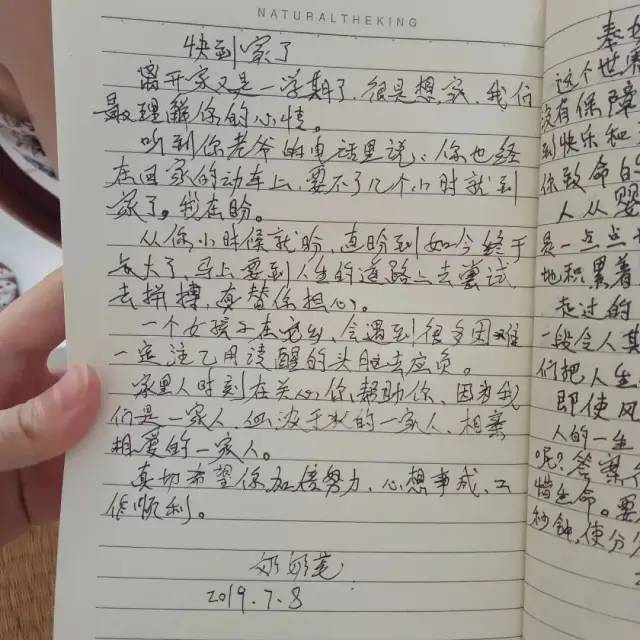 NATURALTHEKING
快到家了
离开家又是一学期了，很是想家，我们
最理解你的心情。
听到你老爷的电话里说：你也经
在回家的动车上，要不了几个小时就到
家了。我在盼。
从你小时候就盼，直盼到如今终于
长大了，马上要到人生的道路上去尝试
去拼搏，真替你担心。
一个女孩子在外，会遇到很多困难
一定注已用清醒的头脑去应负。
家里人时刻在关心你，帮助你，因为我
们是一家人，血浓于水的一家人，相亲
相爱的一家人。
真切希望你加倍努力，心想事成，工
作顺利。
奶奶
2019.7.8
奉
这个世界
没有保障
到快乐和
你致命的
人从婴
是一点点
地积累着
走过的
一段令人
们把人生
即使风
人的一生
呢？答案
惜生命。要
秒钟，使分